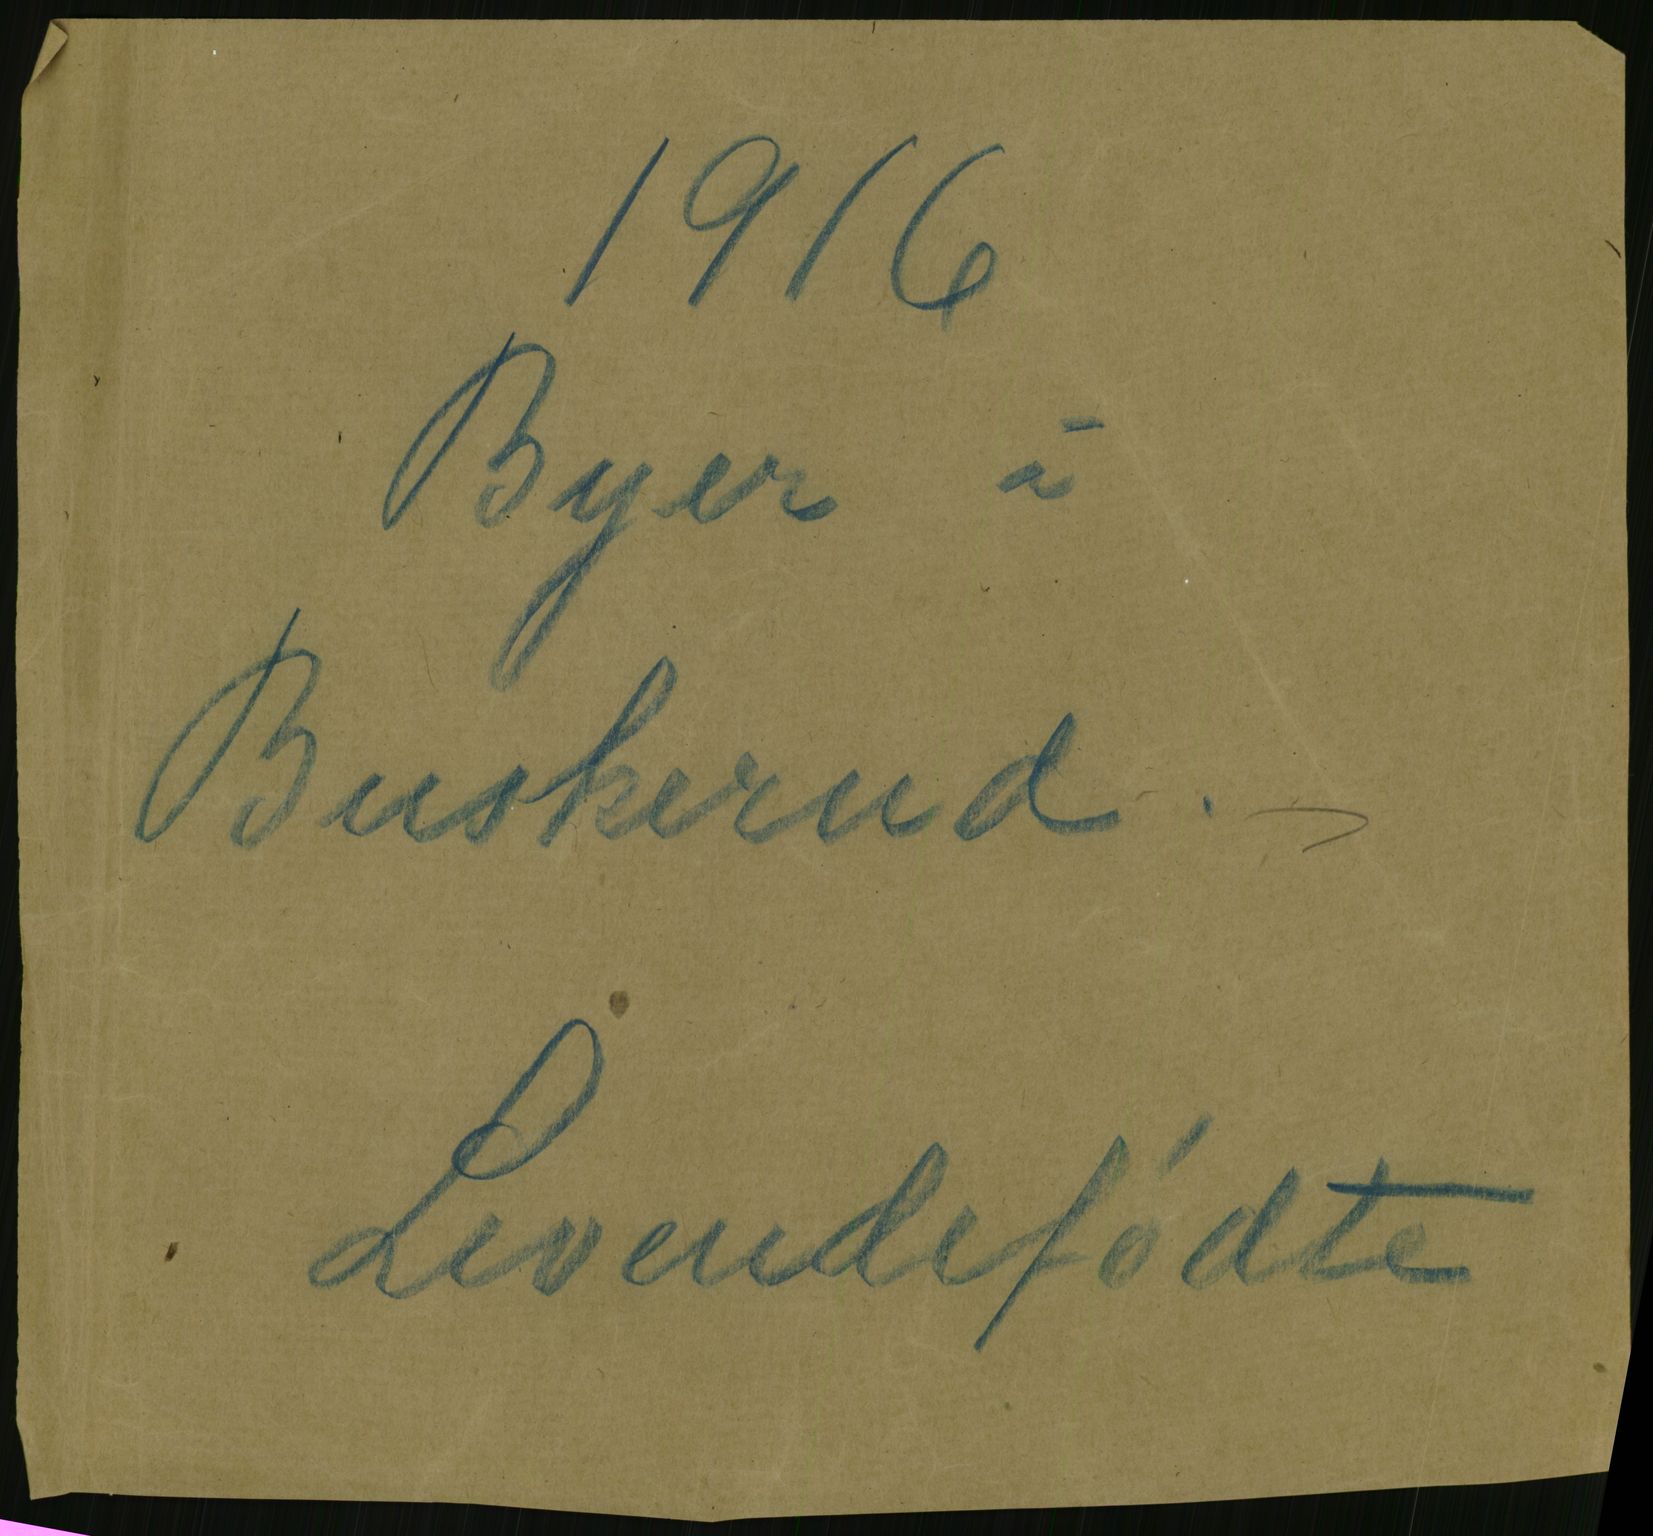 1916
Byer i
Buskerud.
Levendefødte